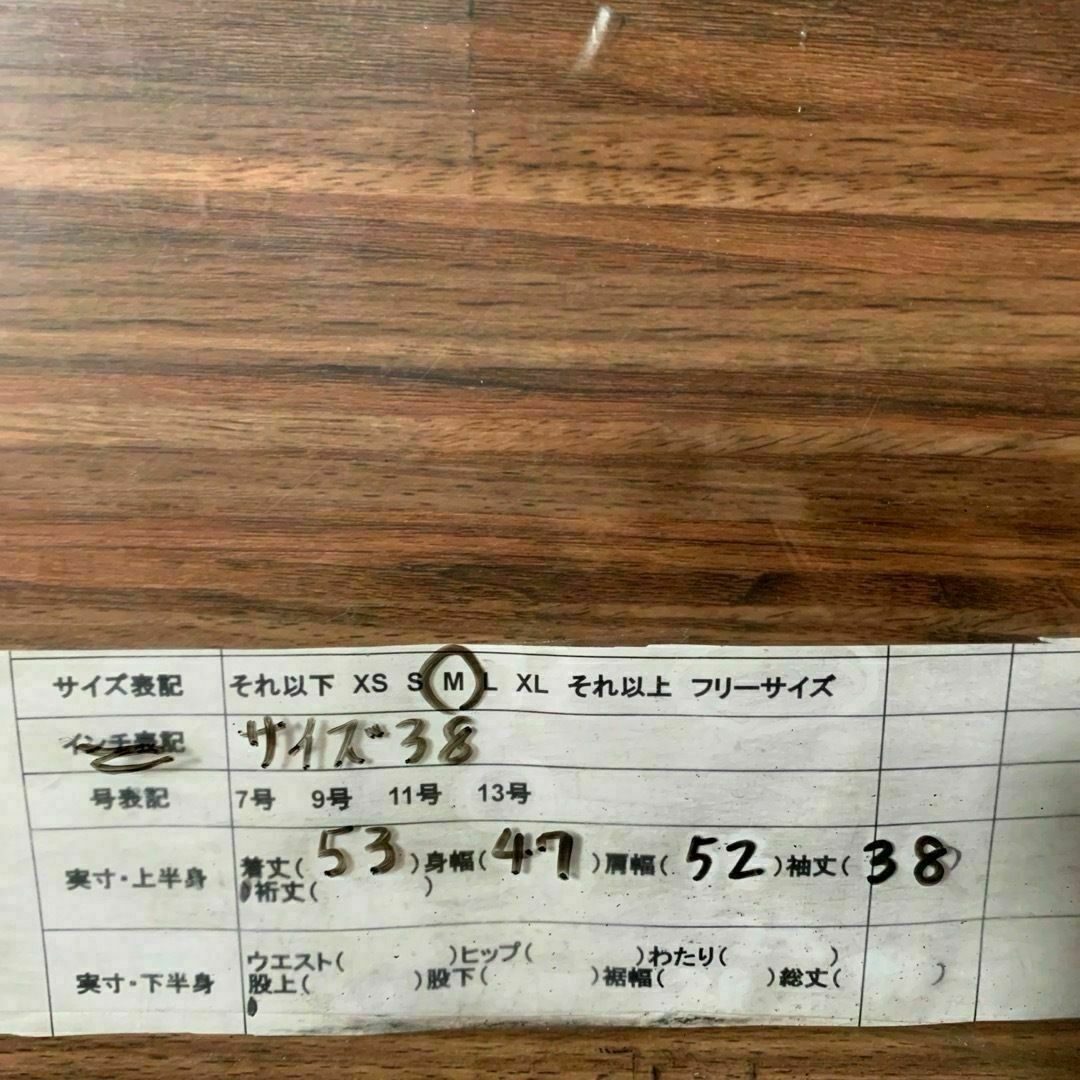 サイズ表記 それ以下 XS S M L XL それ以上 フリーサイズ
インチ表記 サイズ38
号表記 7号 9号 11号 13号
実寸・上半身 着丈( 53 )身幅( 47 )肩幅( 52 )袖丈( 38 )
裄丈( )
実寸・下半身 ウエスト( )ヒップ( )わたり( )
股上( )股下( )裾幅( )総丈( )